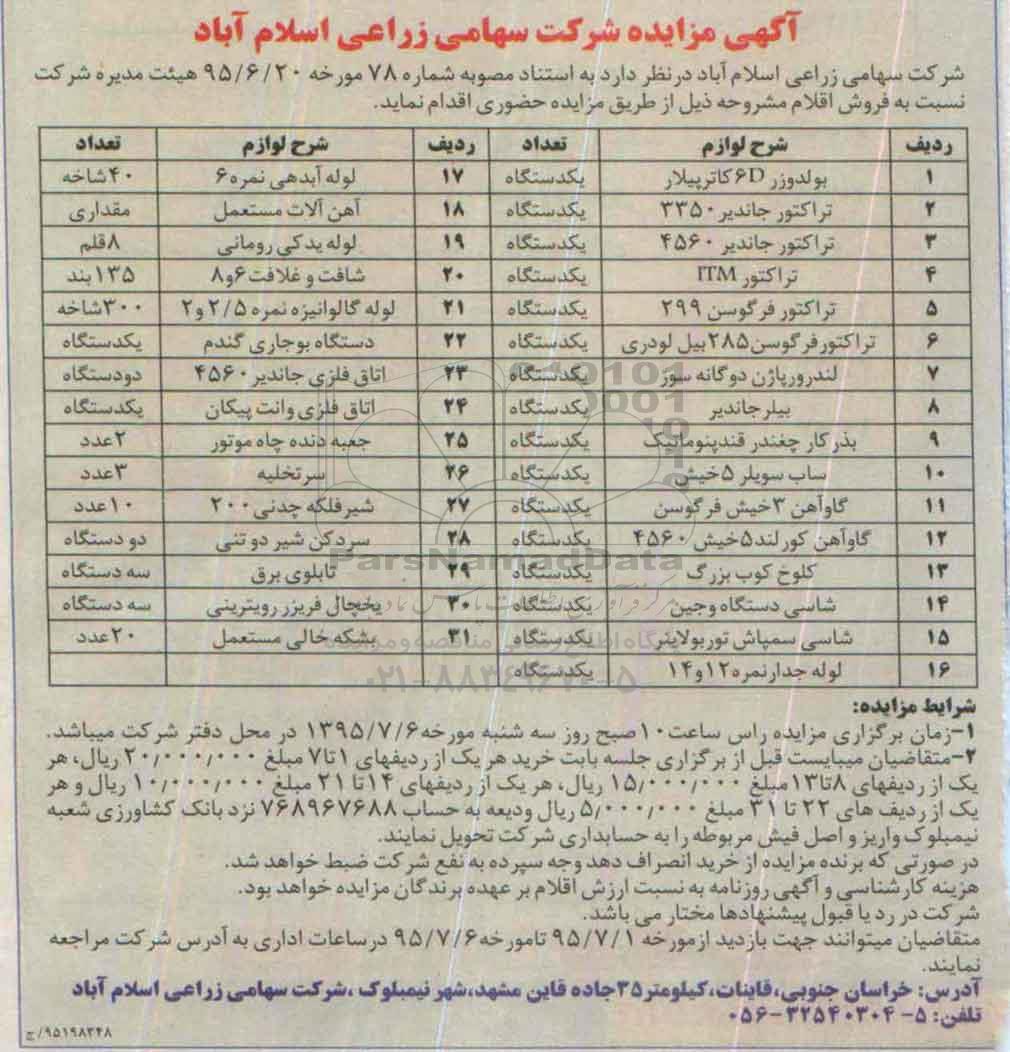 آگهی مزایده شرکت سهامی زراعی اسلام آباد
شرکت سهامی زراعی اسلام آباد درنظر دارد به استناد مصوبه شماره ۷۸ مورخه ۹۵/۶/۲۰ هیئت مدیره شرکت
نسبت به فروش اقلام مشروحه ذیل از طریق مزایده حضوری اقدام نماید.
ردیف شرح لوازم تعداد ردیف شرح لوازم تعداد
۱ بولدوزر ۶D کاترپیلار یکدستگاه ۱۷ لوله آبدهی نمره ۶ ۴۰شاخه
۲ تراکتور جاندیر ۳۳۵۰ یکدستگاه ۱۸ آهن آلات مستعمل مقداری
۳ تراکتور جاندیر ۴۵۶۰ یکدستگاه ۱۹ لوله یدکی رومانی ۸قلم
۴ تراکتور ITM یکدستگاه ۲۰ شافت و غلافت ۶و۸ ۱۳۵بند
۵ تراکتور فرگوسن ۲۹۹ یکدستگاه ۲۱ لوله گالوانیزه نمره ۲/۵ و۲ ۳۰۰شاخه
۶ تراکتورفرگوسن۲۸۵بیل لودری یکدستگاه ۲۲ دستگاه بوجاری گندم یکدستگاه
۷ لندرورپاژن دوگانه سوز یکدستگاه ۲۳ اتاق فلزی جاندیر ۴۵۶۰ دودستگاه
۸ بیلرجاندیر یکدستگاه ۲۴ اتاق فلزی وانت پیکان یکدستگاه
۹ بذرکار چغندر قندپنوماتیک یکدستگاه ۲۵ جعبه دنده چاه موتور ۲عدد
۱۰ ساب سویلر ۵خیش یکدستگاه ۲۶ سرتخلیه ۳عدد
۱۱ گاوآهن ۳خیش فرگوسن یکدستگاه ۲۷ شیرفلکه چدنی ۲۰۰ ۱۰عدد
۱۲ گاوآهن کورلند۵خیش ۴۵۶۰ یکدستگاه ۲۸ سردکن شیر دوتنی دو دستگاه
۱۳ کلوخ کوب بزرگ یکدستگاه ۲۹ تابلوی برق سه دستگاه
۱۴ شاسی دستگاه وجین یکدستگاه ۳۰ یخچال فریزر رویترینی سه دستگاه
۱۵ شاسی سمپاش توربولاینر یکدستگاه ۳۱ بشکه خالی مستعمل ۲۰عدد
۱۶ لوله جدارنمره ۱۲و۱۴ یکدستگاه
شرایط مزایده:
۱-زمان برگزاری مزایده راس ساعت۱۰صبح روز سه شنبه مورخه۱۳۹۵/۷/۶ در محل دفتر شرکت میباشد.
۲-متقاضیان میبایست قبل از برگزاری جلسه بابت خرید هر یک از ردیفهای ۱تا۷ مبلغ ۲۰/۰۰۰/۰۰۰ریال، هر
یک از ردیفهای ۸تا۱۳مبلغ ۱۵/۰۰۰/۰۰۰ ریال، هر یک از ردیفهای ۱۴تا ۲۱ مبلغ ۱۰/۰۰۰/۰۰۰ ریال و هر
یک از ردیف های ۲۲ تا ۳۱ مبلغ ۵/۰۰۰/۰۰۰ ریال ودیعه به حساب ۷۶۸۹۶۷۶۸۸ نزد بانک کشاورزی شعبه
نیمبلوک واریز و اصل فیش مربوطه را به حسابداری شرکت تحویل نمایند.
در صورتی که برنده مزایده از خرید انصراف دهد وجه سپرده به نفع شرکت ضبط خواهد شد.
هزینه کارشناسی و آگهی روزنامه به نسبت ارزش اقلام بر عهده برندگان مزایده خواهد بود.
شرکت در رد یا قبول پیشنهادها مختار می باشد.
متقاضیان میتوانند جهت بازدید ازمورخه ۹۵/۷/۱ تامورخه۹۵/۷/۶ درساعات اداری به آدرس شرکت مراجعه
نمایند.
آدرس: خراسان جنوبی،قاینات،کیلومتر۳۵جاده قاین مشهد،شهر نیمبلوک ،شرکت سهامی زراعی اسلام آباد
تلفن: ۵-۳۲۵۴۰۳۰۴-۰۵۶
۹۵۱۹۸۳۴۸/ج
ParsNamadData